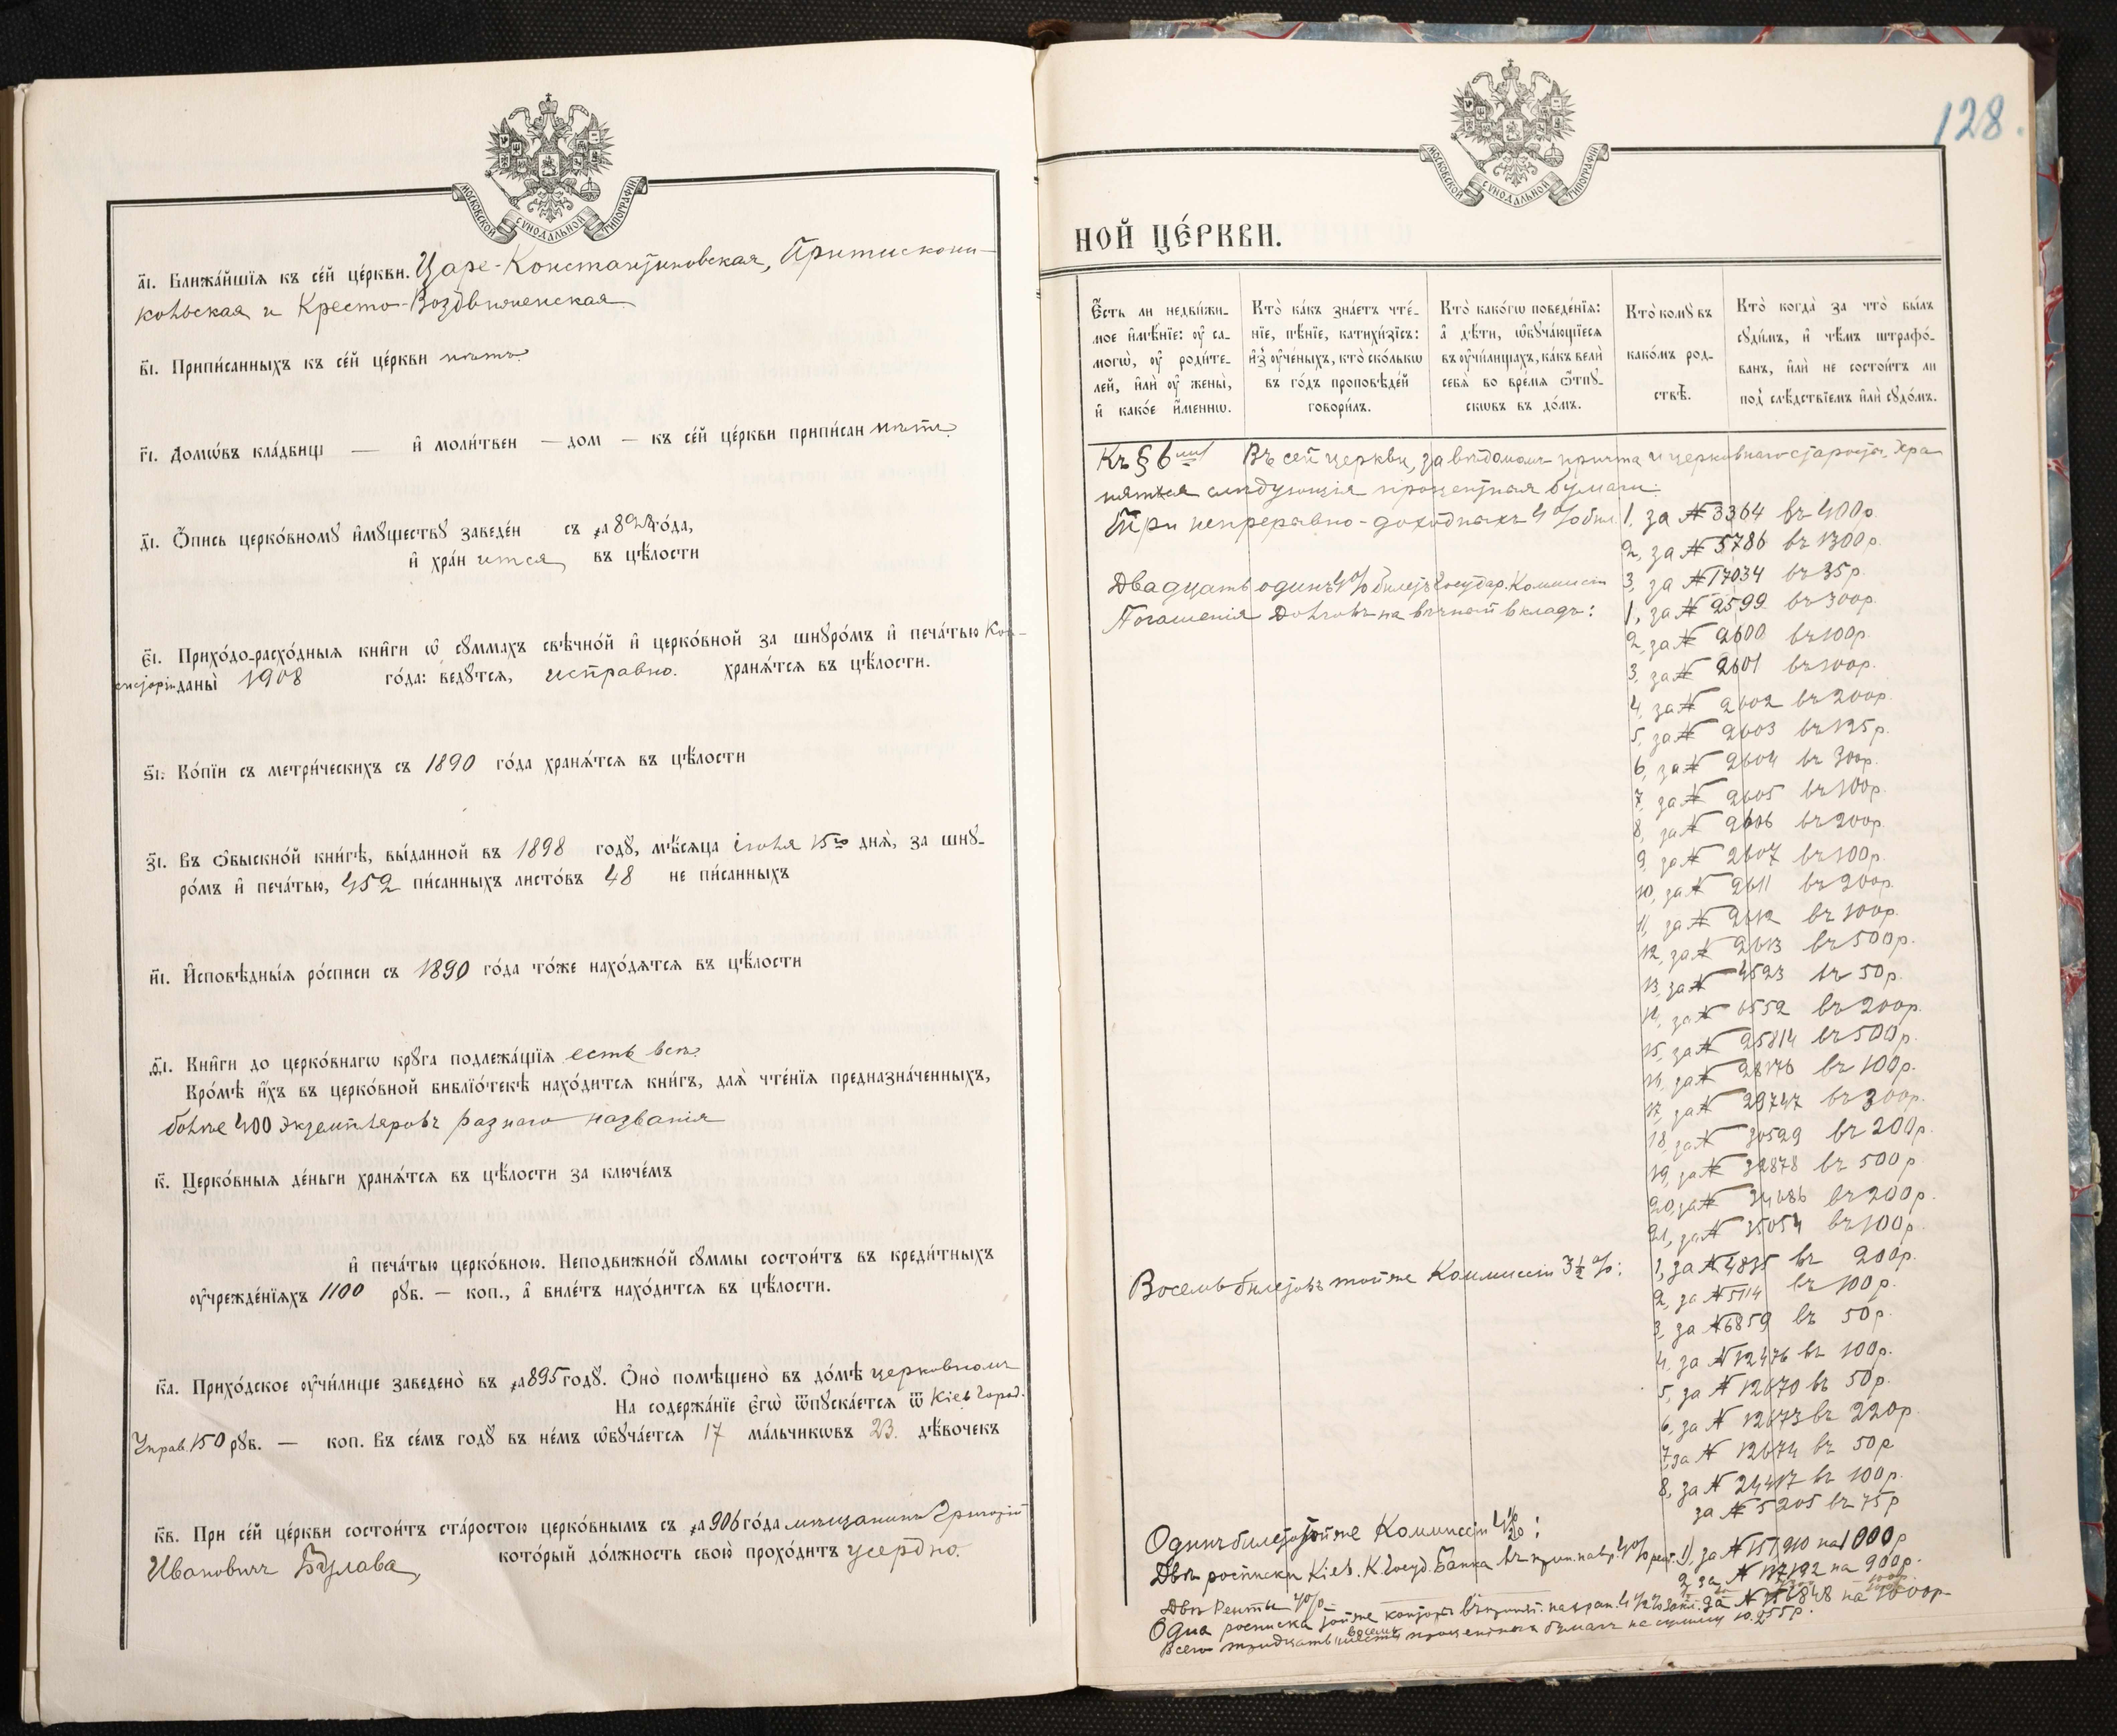 МОСКОВСКОЙ СУНОДАЛЬНОЙ ТИПОГРАФІИ.
а҃і. Ближа́йшїѧ къ се́й це́ркви. Царе-Константиновская, Притиско-Ни-
кольская и Кресто-Воздвиженская
в҃і. Припи́санныхъ къ се́й це́ркви нѣтъ.
г҃і. Домѡ́въ кла́дбищ — и҆ моли́твен — дом — къ се́й це́ркви припи́сан нѣтъ.
д҃і. Ѻ҆́пись церко́вномꙋ и҆мꙋ́ществꙋ заведе́н съ ҂а 898 го́да,
и҆ хран ится въ цѣ́лости
є҃і. Прихо́до-расхо́дныѧ кни̑ги ѡ҆ сꙋ́ммахъ свѣчно́й и҆ церко́вной за шнꙋро́мъ и҆ печа́тью Кон-
систоріи даны̀ 1908 го́да: ведꙋ́тсѧ, исправно. хранѧ́тсѧ въ цѣ́лости.
ѕ҃і. Ко́пїи съ метри́ческихъ съ 1890 го́да хранѧ́тсѧ въ цѣ́лости
з҃і. Въ ѡ҆быскно́й кни́гѣ, вы́данной въ 1898 годꙋ̀, мѣ́сѧца іюля 15го днѧ̀, за шнꙋ-
ро́мъ и҆ печа́тью, 452 пи́санныхъ листо́въ 48 не пи́санныхъ
и҃і. И҆сповѣ́дныѧ ро́списи съ 1890 го́да то́же нахо́дѧтсѧ въ цѣ́лости
ѳ҃і. Кни̑ги до церко́внагѡ крꙋ́га подлежа́щїѧ есть всѣ.
Кро́мѣ и҆́хъ въ церко́вной библїо́текѣ нахо́дитсѧ кни́гъ, длѧ̀ чте́нїѧ предназна́ченныхъ,
болѣе 400 экземпляровъ разнаго названія
к҃. Церко́вныѧ де́ньги хранѧ́тсѧ въ цѣ́лости за ключе́мъ
и҆ печа́тью церко́вною. Неподвижно́й сꙋ́ммы состои́тъ въ креди́тныхъ
ᲂу҆чрежде́нїѧхъ 1100 рꙋб. — коп., а҆ биле́тъ нахо́дитсѧ въ цѣ́лости.
к҃а. Прихо́дское ᲂу҆чи́лище заведено̀ въ ҂а 895 годꙋ̀. Ѻ҆но̀ помѣщено̀ въ до́мѣ церковномъ
На содержа́нїе є҆гѡ̀ ѿпꙋска́етсѧ ѿ Кіев Город.
Управ. 150 рꙋб. — коп. Въ се́мъ годꙋ̀ въ не́мъ ѡ҆бꙋча́етсѧ 17 ма́льчикѡвъ 23. дѣ́вочекъ
к҃в. При се́й це́ркви состои́тъ ста́ростою церко́внымъ съ ҂а 906 го́да мѣщанинъ Григорій
Ивановичъ Булава, кото́рый до́лжность свою̀ прохо́дитъ усердно.
128.
МОСКОВСКОЙ СУНОДАЛЬНОЙ ТИПОГРАФІИ.
НОЙ ЦЕ́РКВИ.
Є҆́сть ли недви́жи-
мое и҆мѣ́нїе: ᲂу҆ са-
могѡ̀, ᲂу҆ роди́те-
лей, и҆лѝ ᲂу҆ жены̀,
и҆ како́е и҆́меннѡ.
Кто̀ ка́къ зна́етъ чте́-
нїе, пѣ́нїе, катихи́зїсъ:
и҆з̾ ᲂу҆че́ныхъ, кто̀ ско́лькѡ
въ го́дъ проповѣ́дей
говори́лъ.
Кто̀ како́гѡ поведе́нїѧ:
а҆ дѣ́ти, ѡ҆бꙋча́ющїесѧ
въ ᲂу҆чи́лищахъ, ка́къ велѝ
себѧ̀ во вре́мѧ ѿпꙋ-
скѡвъ въ до́мъ.
Кто̀ комꙋ̀ въ
како́мъ род-
ствѣ̀.
Кто̀ когда̀ за что̀ бы́лъ
сꙋди́мъ, и҆ чѣ́мъ штрафо́-
ванъ, и҆лѝ не состои́тъ ли
под̾ слѣ́дствїемъ и҆лѝ сꙋдо́мъ.
Къ § 6му Въ сей церкви, за вѣдомомъ причта и церковнаго старосты, хра-
нятся слѣдующія процентныя бумаги:
Три непрерывно-доходныхъ 4% бил. 1, за № 3364 въ 400р.
2, за № 5786 въ 1300р.
3, за № 17034 въ 35р.
Двадцать одинъ 4% билетъ Государ. Коммисіи
Погашенія Долговъ на вѣчный вкладъ: 1, за № 2599 въ 300р.
2, за № 2600 въ 100р.
3, за № 2601 въ 100р.
4, за № 2602 въ 200р.
5, за № 2603 въ 125р.
6, за № 2604 въ 300р.
7, за № 2605 въ 100р.
8, за № 2606 въ 200р.
9, за № 2607 въ 100р.
10, за № 2611 въ 200р.
11, за № 2612 въ 100р.
12, за № 2613 въ 500р.
13, за № 4523 въ 50р.
14, за № 6552 въ 200р.
15, за № 25814 въ 500р.
16, за № 28176 въ 100р.
17, за № 29747 въ 300р.
18, за № 30529 въ 200р.
19, за № 32878 въ 500р.
20, за № 34686 въ 200р.
21, за № 35054 въ 100р.
Восемь билетовъ той же Коммисіи 3½%: 1, за № 4835 въ 200р.
2, за № 5114 въ 100р.
3, за № 6859 въ 50р.
4, за № 12476 въ 100р.
5, за № 12670 въ 50р.
6, за № 12673 въ 220р.
7, за № 12674 въ 50р
8, за № 24417 въ 100р.
Одинъ билетъ той же Коммисіи 4%: за № 5205 въ 75р
Двѣ росписки Кіев. К. Госуд. Банка въ 1), за № 151,910 на 1000р
2 за № 117192 на 900р.
Двѣ Ренты 4%
Одна росписка той же конторы за № 356848 на 1000р
Всего тридцать процентныхъ бумагъ на сумму 10.255р.